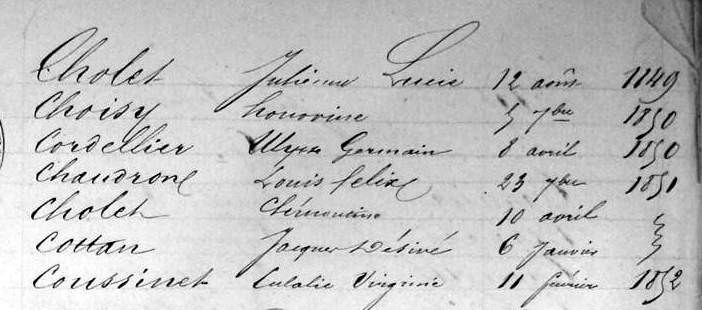 Cholet Julienne Lucie 12 août 1849
Choisy honorine 5 7bre 1850
Cordellier Ulysse Germain 8 avril 1850
Chaudrone Louis felix 23 7bre 1851
Cholet 10 avril
Cottan Jacques Désiré 6 Janvier
Coussinet Eulalie Virginie 11 février 1852